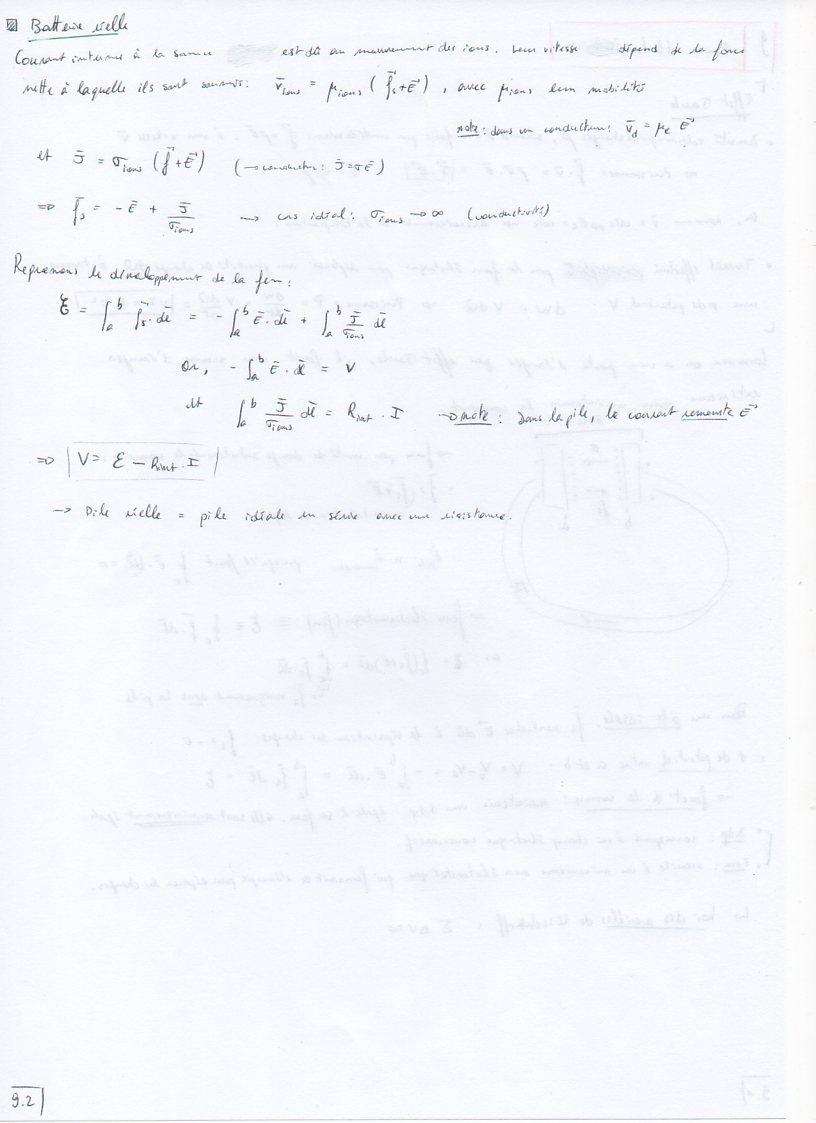 Batterie réelle
Courant interne à la source est dû au mouvement des ions. Leur vitesse dépend de la force
nette à laquelle ils sont soumis : v̄ions = μions (f̄s + Ē), avec μions leur mobilité
note : dans un conducteur : v̄d = μe Ē
et J̄ = σions (f̄ + Ē) (→ conducteur : J̄ = σĒ)
=> f̄s = -Ē + J̄/σions → cas idéal : σions → ∞ (conductivité)
Reprenons le développement de la fem :
ℰ = ∫ₐᵇ f̄s · dl̄ = - ∫ₐᵇ Ē · dl̄ + ∫ₐᵇ J̄/σions dl̄
Or, - ∫ₐᵇ Ē · dl̄ = V
et ∫ₐᵇ J̄/σions dl̄ = Rint · I → note : Dans la pile, le courant remonte Ē
=> V = ℰ - Rint · I
→ Pile réelle = pile idéale en série avec une résistance.
9.2